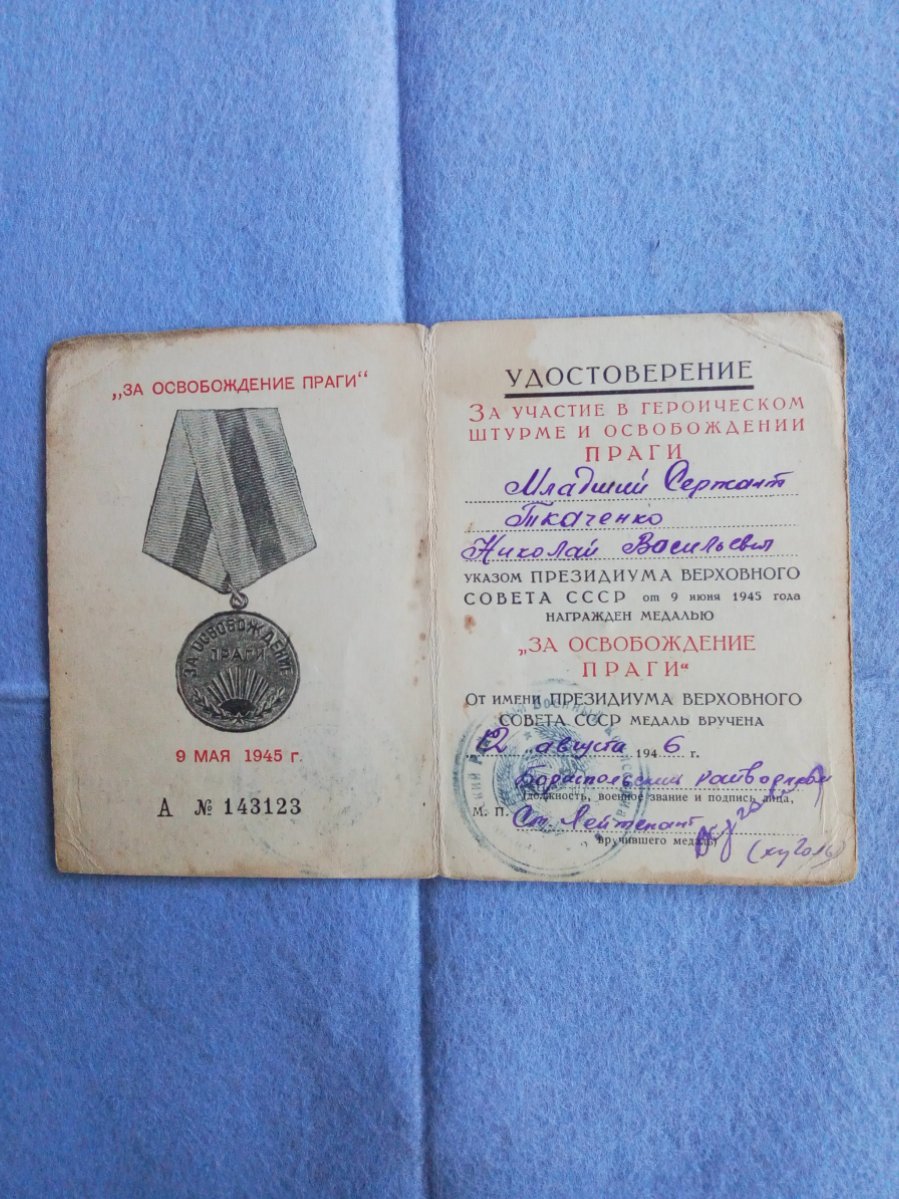 „ЗА ОСВОБОЖДЕНИЕ ПРАГИ“
ЗА ОСВОБОЖДЕНИЕ
ПРАГИ
9 МАЯ 1945 г.
А № 143123
УДОСТОВЕРЕНИЕ
ЗА УЧАСТИЕ В ГЕРОИЧЕСКОМ
ШТУРМЕ И ОСВОБОЖДЕНИИ
ПРАГИ
Младший Сержант
Ткаченко
Николай Васильевич
УКАЗОМ ПРЕЗИДИУМА ВЕРХОВНОГО
СОВЕТА СССР от 9 июня 1945 года
НАГРАЖДЕН МЕДАЛЬЮ
„ЗА ОСВОБОЖДЕНИЕ
ПРАГИ“
ОТ ИМЕНИ ПРЕЗИДИУМА ВЕРХОВНОГО
СОВЕТА СССР МЕДАЛЬ ВРУЧЕНА
12 августа 1946 г.
Бориспольский райвоенком
(должность, военное звание и подпись лица,
М. П. Ст. Лейтенант
вручившего медаль)